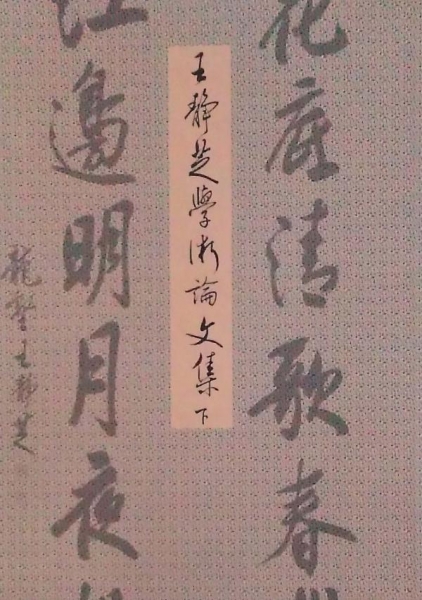 花底清歌春
江邊明月夜
王靜芝學術論文集 下
王靜芝